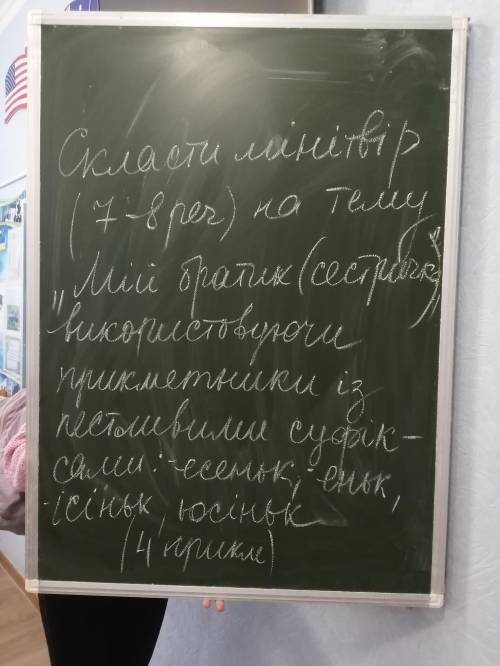 Скласти мінітвір
(7-8 реч) на тему
„Мій братик (сестричка)”,
використовуючи
прикметники із
пестливими суфік-
сами: -есеньк, -еньк,
-ісіньк, юсіньк
(4 прикм)